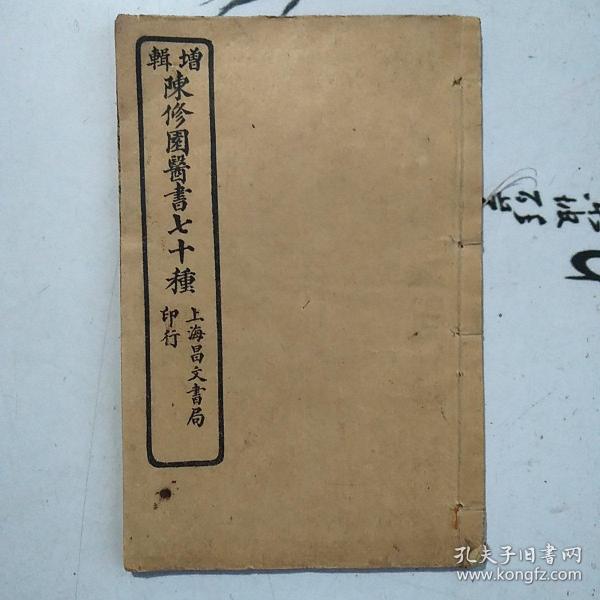 增輯
陳修園醫書七十種
上海昌文書局
印行
孔夫子旧书网
www.kongfz.com